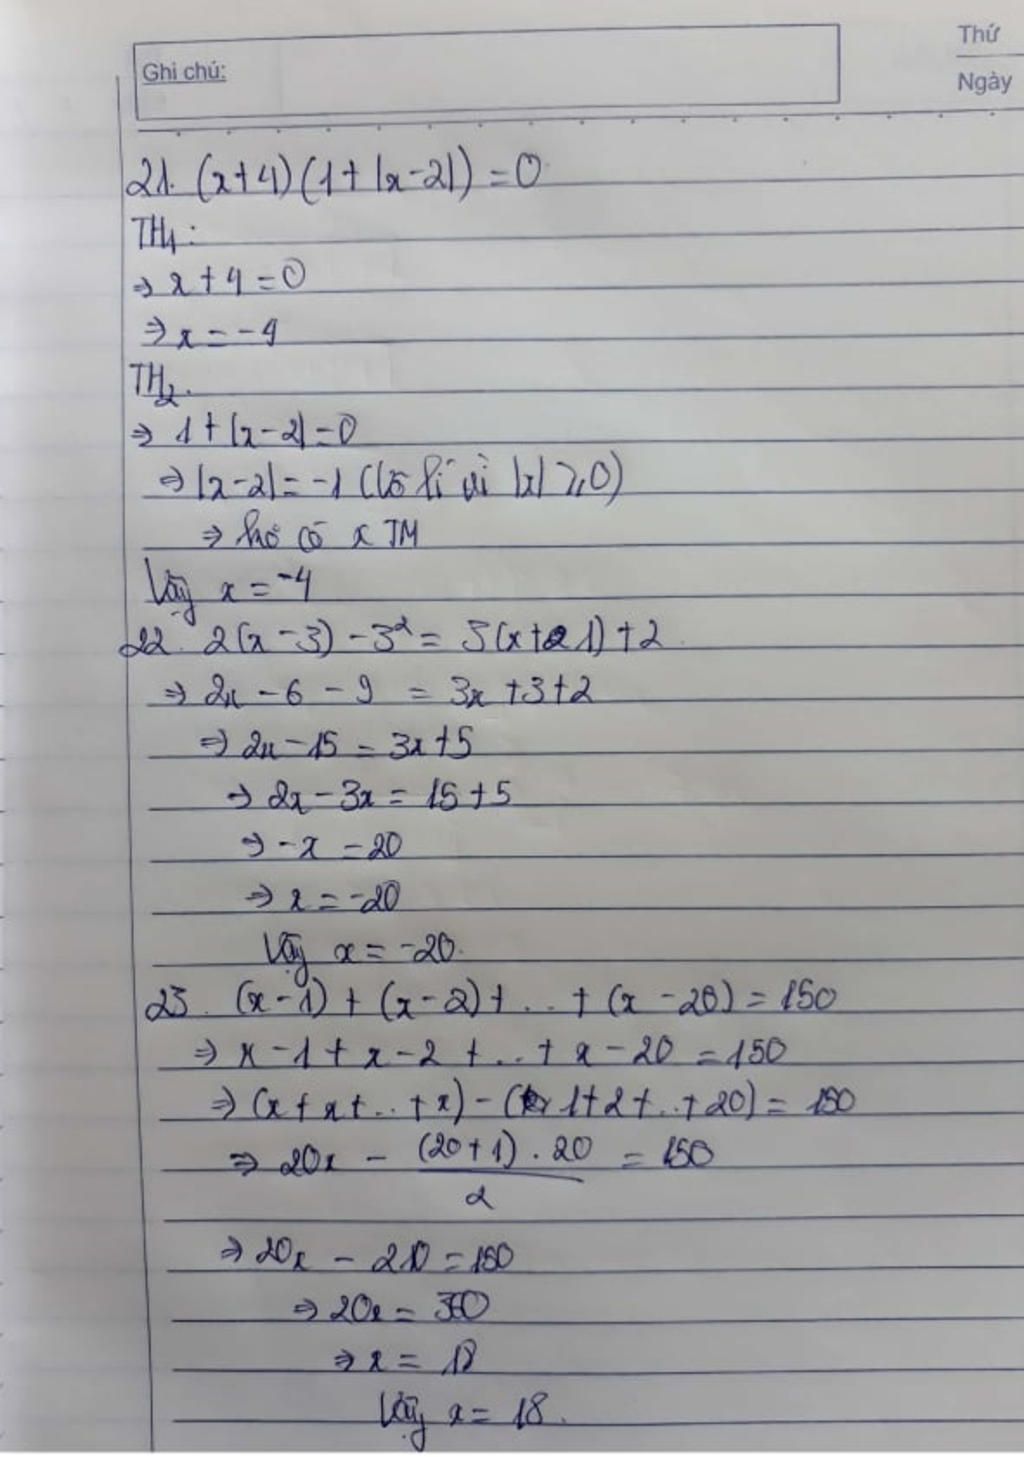 Thứ
Ghi chú:
Ngày
21. (x+4)(1+|x-2|)=0
TH1:
⇒ x+4=0
⇒ x=-4
TH2.
⇒ 1+|x-2|=0
⇒ |x-2|=-1 (Vô lí vì |x| ⩾0)
⇒ ko có x TM
Vậy x=-4
22. 2(x-3)-3²= 3(x+1)+2
⇒ 2x-6-9 = 3x+3+2
⇒ 2x-15=3x+5
⇒ 2x-3x=15+5
⇒ -x=20
⇒ x=-20
Vậy x=-20.
23. (x-1)+(x-2)+...+(x-20)=150
⇒ x-1+x-2+...+x-20=150
⇒ (x+x+...+x)-(1+2+...+20)=150
⇒ 20x - (20+1).20/2 = 150
⇒ 20x - 210=150
⇒ 20x=360
⇒ x=18
Vậy x=18.